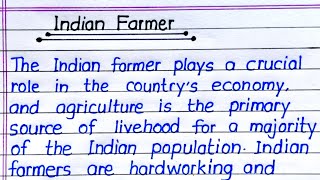 Indian Farmer
The Indian farmer plays a crucial
role in the country's economy,
and agriculture is the primary
source of livehood for a majority
of the Indian population. Indian
farmers are hardworking and